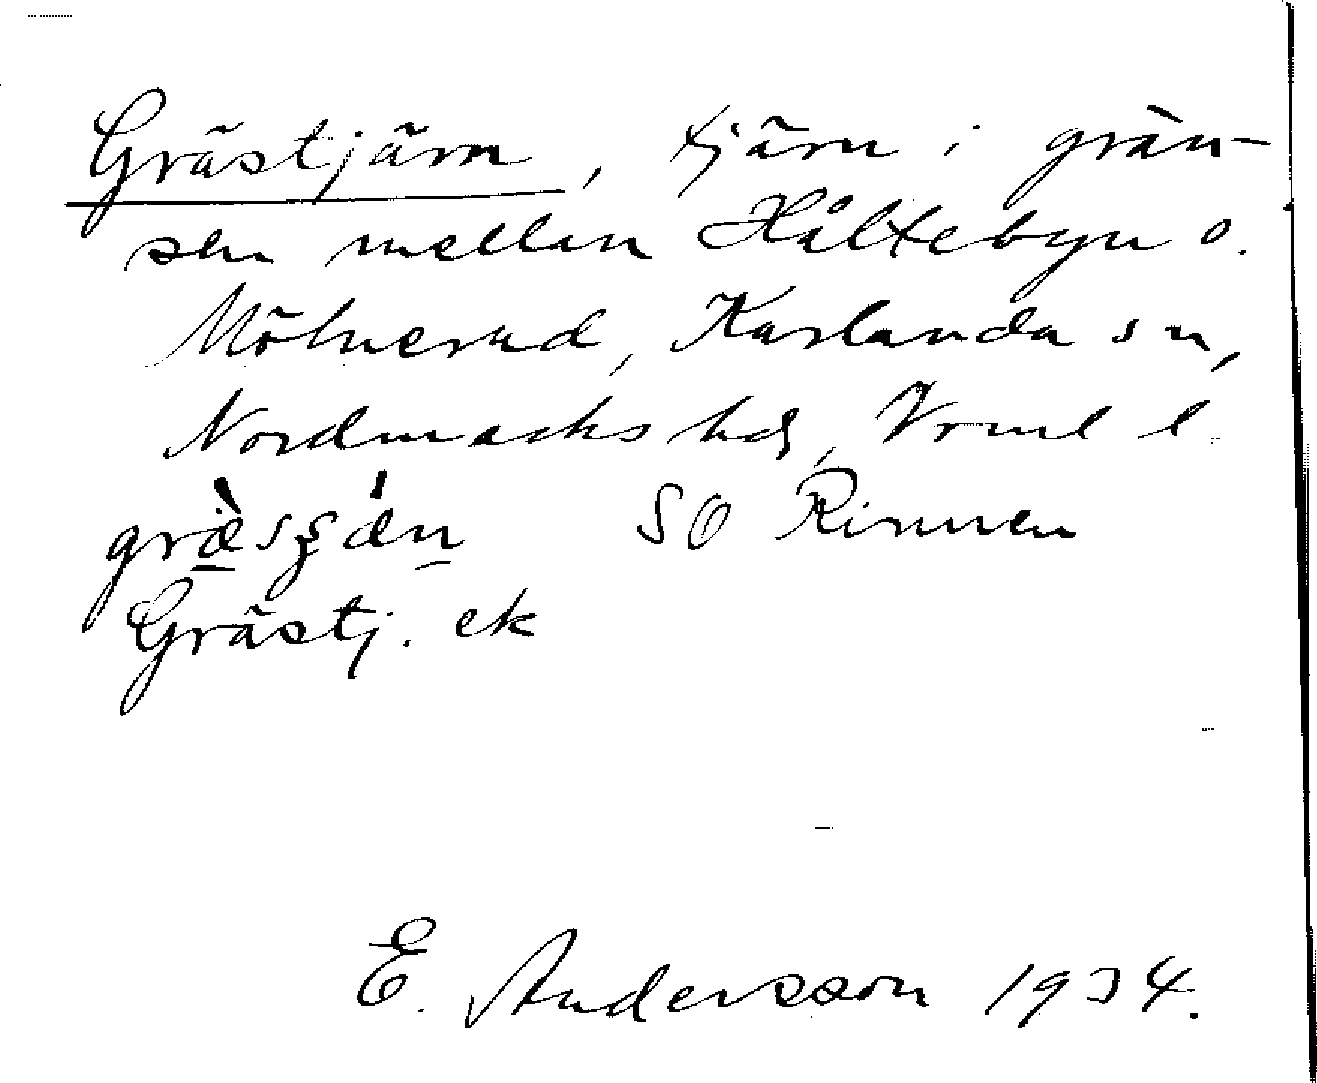 Grästjärn, tjärn i grän-
sen mellan Håltebyn o.
Mölnerud, Karlanda sn,
Nordmarks hd, Vrml l.
SO Rinnen
Grästj. ek
E. Andersson 1934.